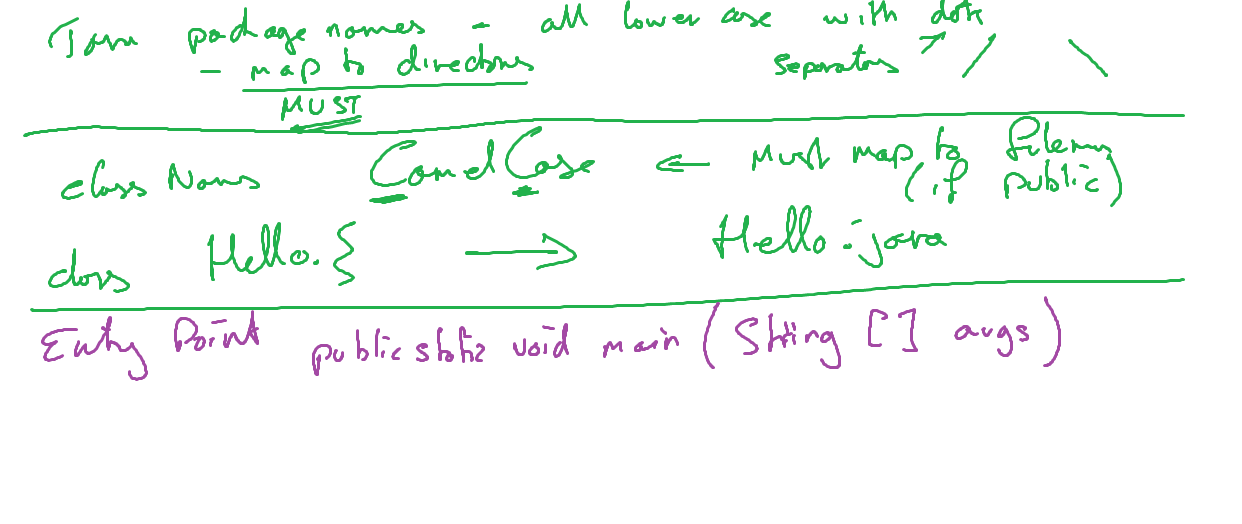 Java package names - all lower case with dots
- map to directories separators ↗ / \
MUST
class Names CamelCase ← Must map to filename
(if public)
class Hello. { → Hello.java
Entry Point public static void main (String [] args)